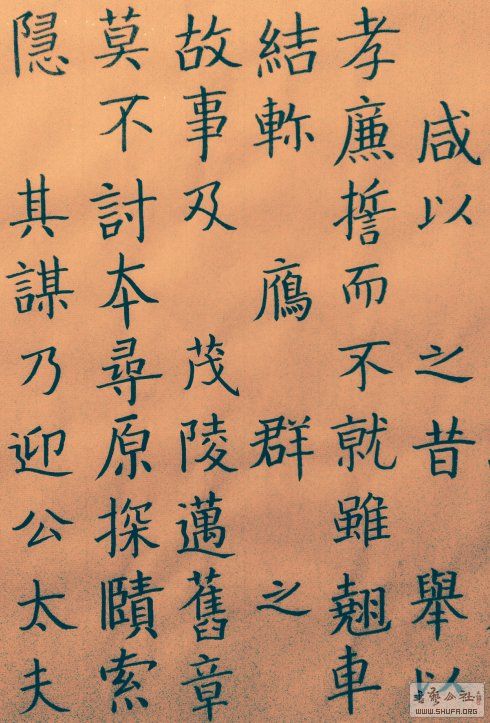 咸以 之昔 舉以
孝廉誓而不就雖翹車
結軫 鴈 群 之
故事及 茂陵邁舊章
莫不討本尋原探賾索
隱 其謀乃迎公太夫
書藝公社
WWW.SHUFA.ORG